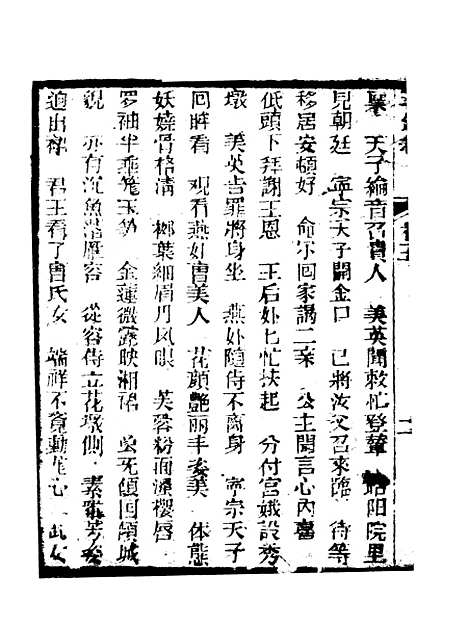 天子綸音召貴人 美英聞敕忙登輦 昭阳院里
見朝廷 寧宗天子開金口 已將汝父召來臨 待等
移居安頓好 命尔回家謁二亲 公主聞言心內喜
低頭下拜謝王恩 王后处七忙扶起 分付宮娥設秀
墩 美英告罪將身坐 燕处隨侍不离身 寧宗天子
回眸看 观看燕好曹美人 花顏艷丽丰姿美 体態
妖嬈骨格清 柳葉細眉丹凤眼 芙蓉粉面濃櫻唇
罗袖半垂籠玉笋 金蓮微露映湘裙 傾城
貌 亦有沉魚落雁容 從容侍立花墩側 素雅芳姿
迥出群 君王看了曹氏女 端祥不覺動崔心 此女